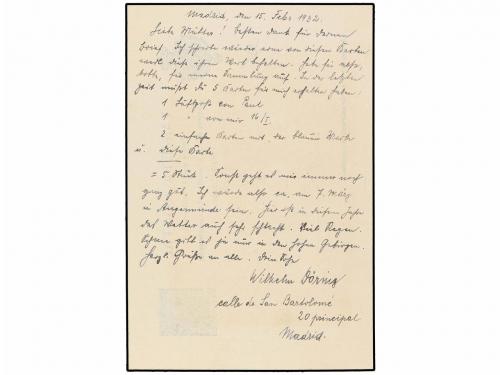 Madrid, den 15. Febr 1932.
Liebe Mutter! Besten Dank für deinen
Brief. Ich schicke wieder eine von diesen Karten
weil diese ihren Wert behalten. Hebe sie also,
bitte, für meine Sammlung auf. In der letzten
Zeit müßt du 5 Karten für mich erhalten haben:
1 Luftpost von Paul
1 " von mir 16/I.
2 einfache Karten mit der blauen Marke
u. diese Karte
= 5 Stück. Sonst geht es mir immer noch
ganz gut. Ich würde also ca. am 7. März
in Angermünde sein. Hier ist in diesem Jahre
das Wetter auch sehr schlecht. Viel Regen.
Schnee gibt es ja nur in den hohen Gebirgen.
Herzl. Grüße an alle. Dein Sohn
Wilhelm Döring
calle de San Bartolomé
20 principal
Madrid.